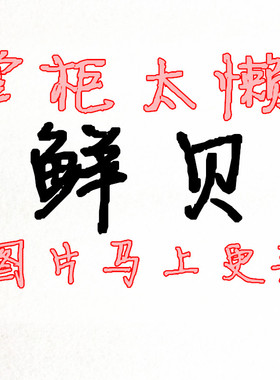 掌柜太懒
鲜贝
图片马上更新